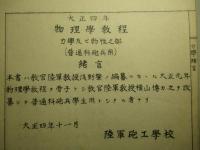 大正四年
物理學教程
力學及ビ物性之部
(普通科砲兵用)
緒言
本書ハ教官陸軍教授淺野肇ノ編纂セル大正元年
物理學教程ヲ骨子トシ教官陸軍教授横山博力之ヲ改
纂シ普通科砲兵學生用トシタルモノナリ
大正四年十一月
陸軍砲工學校
力學緒言